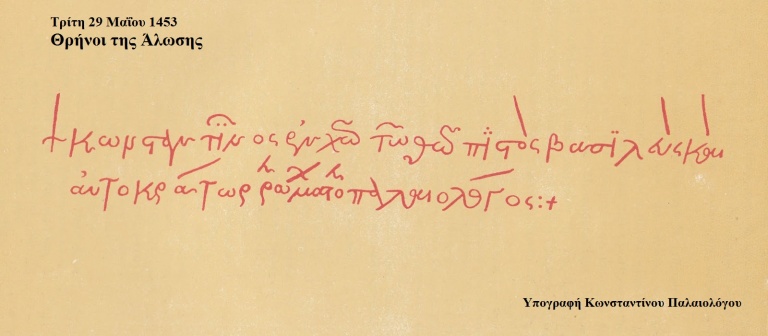 Τρίτη 29 Μαΐου 1453
Θρήνοι της Άλωσης
Κωνσταντῖνος ἐν Χ(ριστ)ῶ τῶ Θ(ε)ῶ πιστὸς βασιλεὺς καὶ
αὐτοκράτωρ Ῥωμαίων ὁ Παλαιολόγος:+
Υπογραφή Κωνσταντίνου Παλαιολόγου